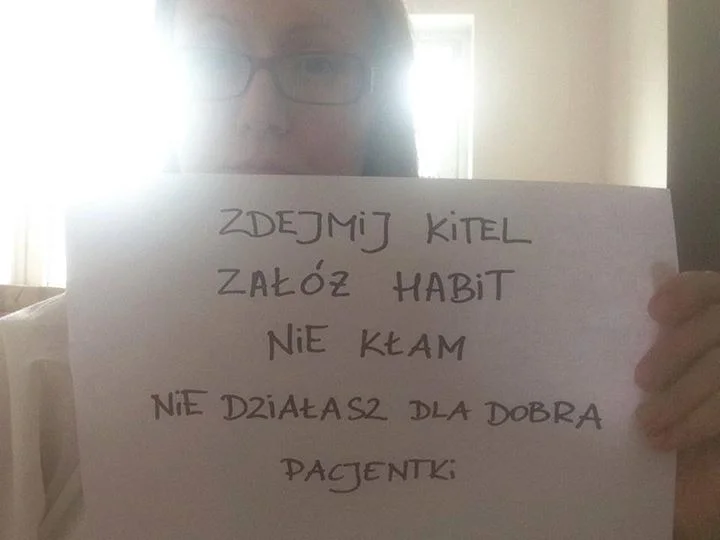 ZDEJMIJ KITEL
ZAŁÓŻ HABIT
NIE KŁAM
NIE DZIAŁASZ DLA DOBRA
PACJENTKI